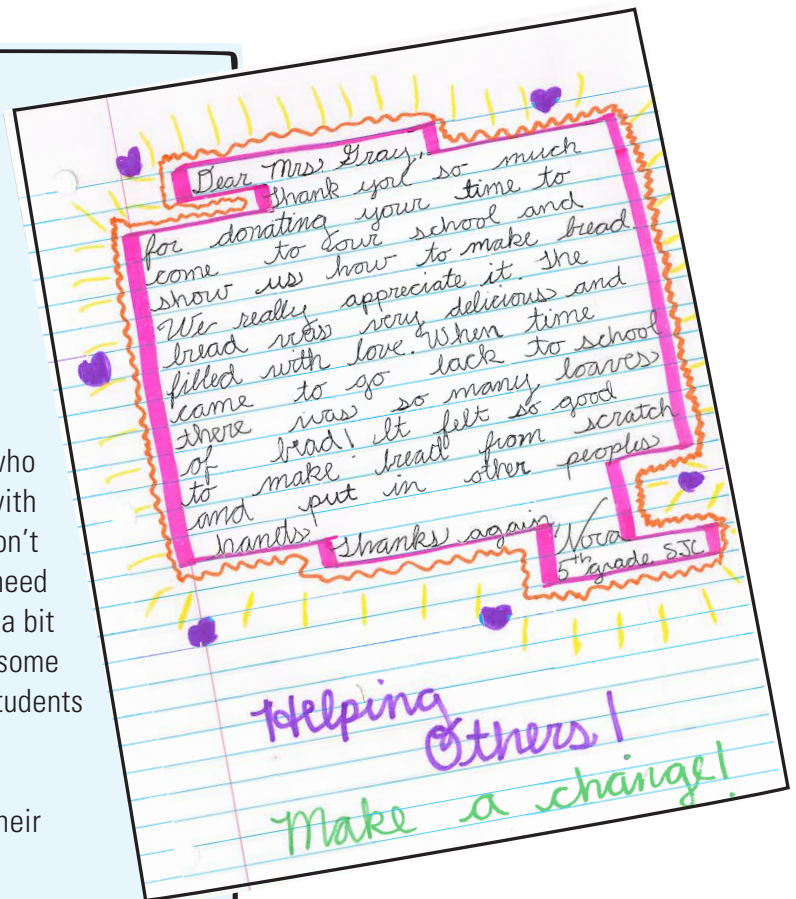 Dear Mrs. Gray,
Thank you so much
for donating your time to
come to our school and
show us how to make bread.
We really appreciate it. The
bread was very delicious and
filled with love. When time
came to go back to school
there was so many loaves
of bread! It felt so good
to make bread from scratch
and put in other peoples
hands. Thanks again,
Nora
5th grade SJC
Helping
Others!
Make a change!
who
with
on't
need
a bit
some
tudents
heir